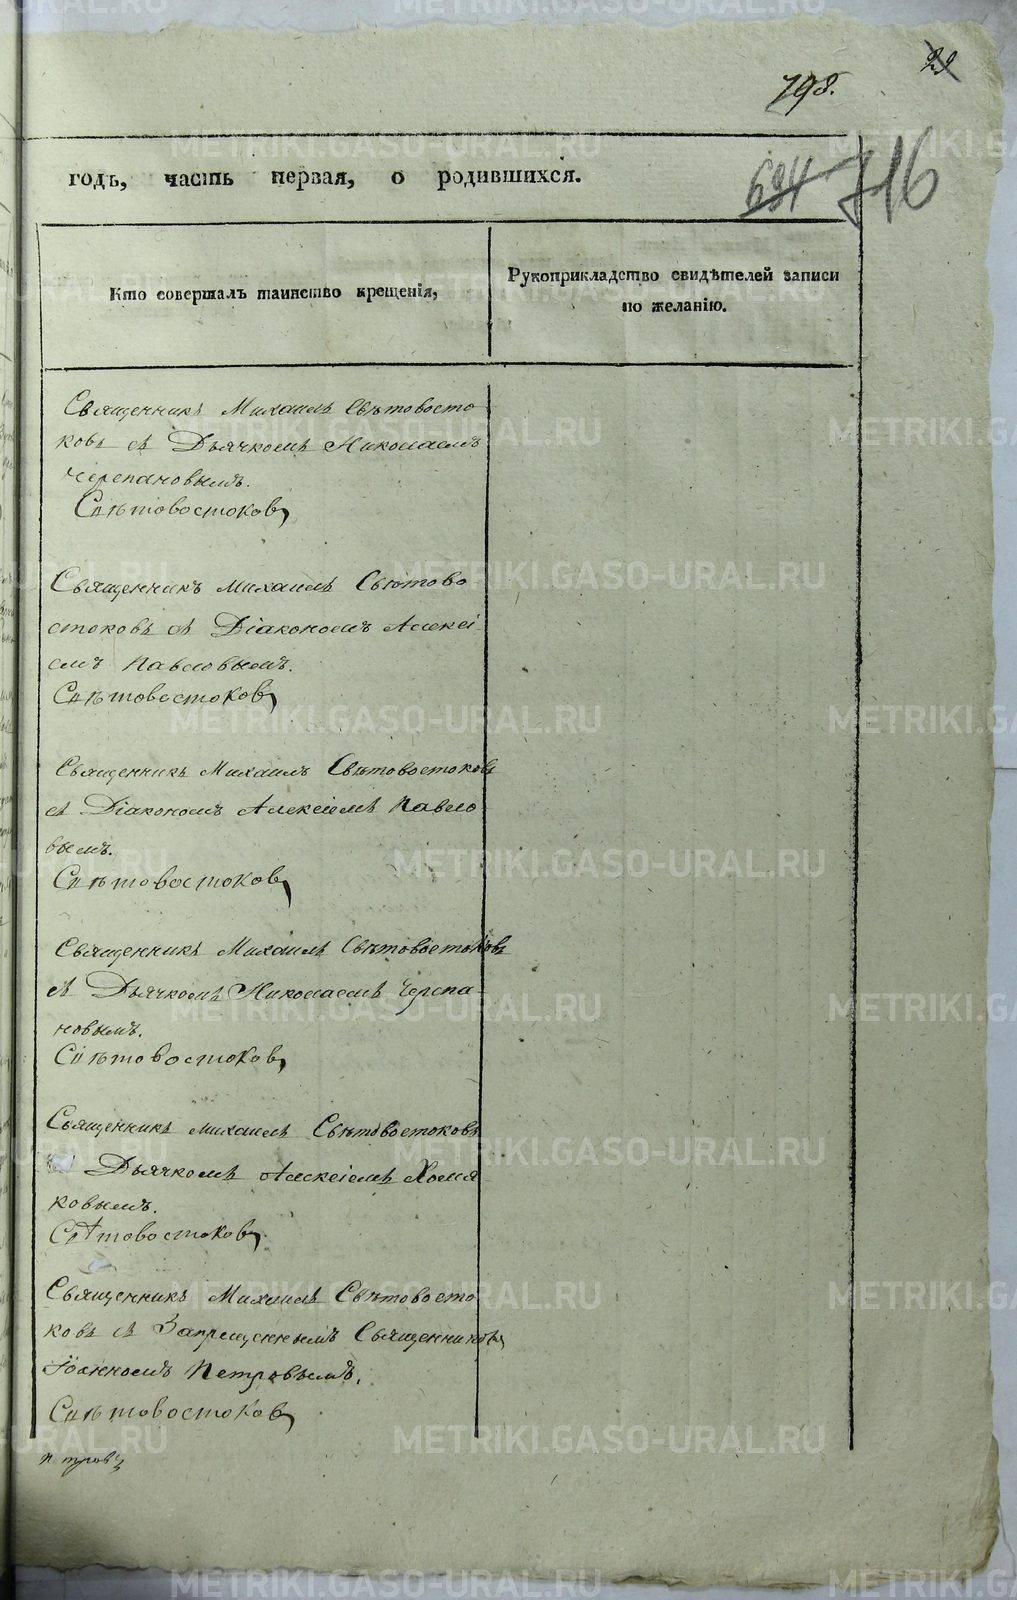 29
798.
694 716
годъ, часть первая, о родившихся.
Кто совершалъ таинство крещенія,
Рукоприкладство свидѣтелей записи
по желанію.
Священникъ Михаилъ Свѣтовосто
ковъ съ Дьячкомъ Николаемъ
Черепановымъ.
Свѣтовостоковъ
Священникъ Михаилъ Свѣтово
стоковъ съ Діакономъ Алексі-
емъ Павловымъ.
Свѣтовостоковъ
Священникъ Михаилъ Свѣтовостоковъ
съ Діакономъ Алексіемъ Павло
вымъ.
Свѣтовостоковъ
Священникъ Михаилъ Свѣтовостоковъ
съ Дьячкомъ Николаемъ Черепа-
новымъ.
Свѣтовостоковъ
Священникъ Михаилъ Свѣтовостоковъ
Дьячкомъ Алексіемъ Хомя
ковымъ.
Свѣтовостоковъ
Священникъ Михаилъ Свѣтовосто
ковъ съ Запрещеннымъ Священникомъ
Іоанномъ Петровымъ.
Свѣтовостоковъ
METRIKI.GASO-URAL.RU